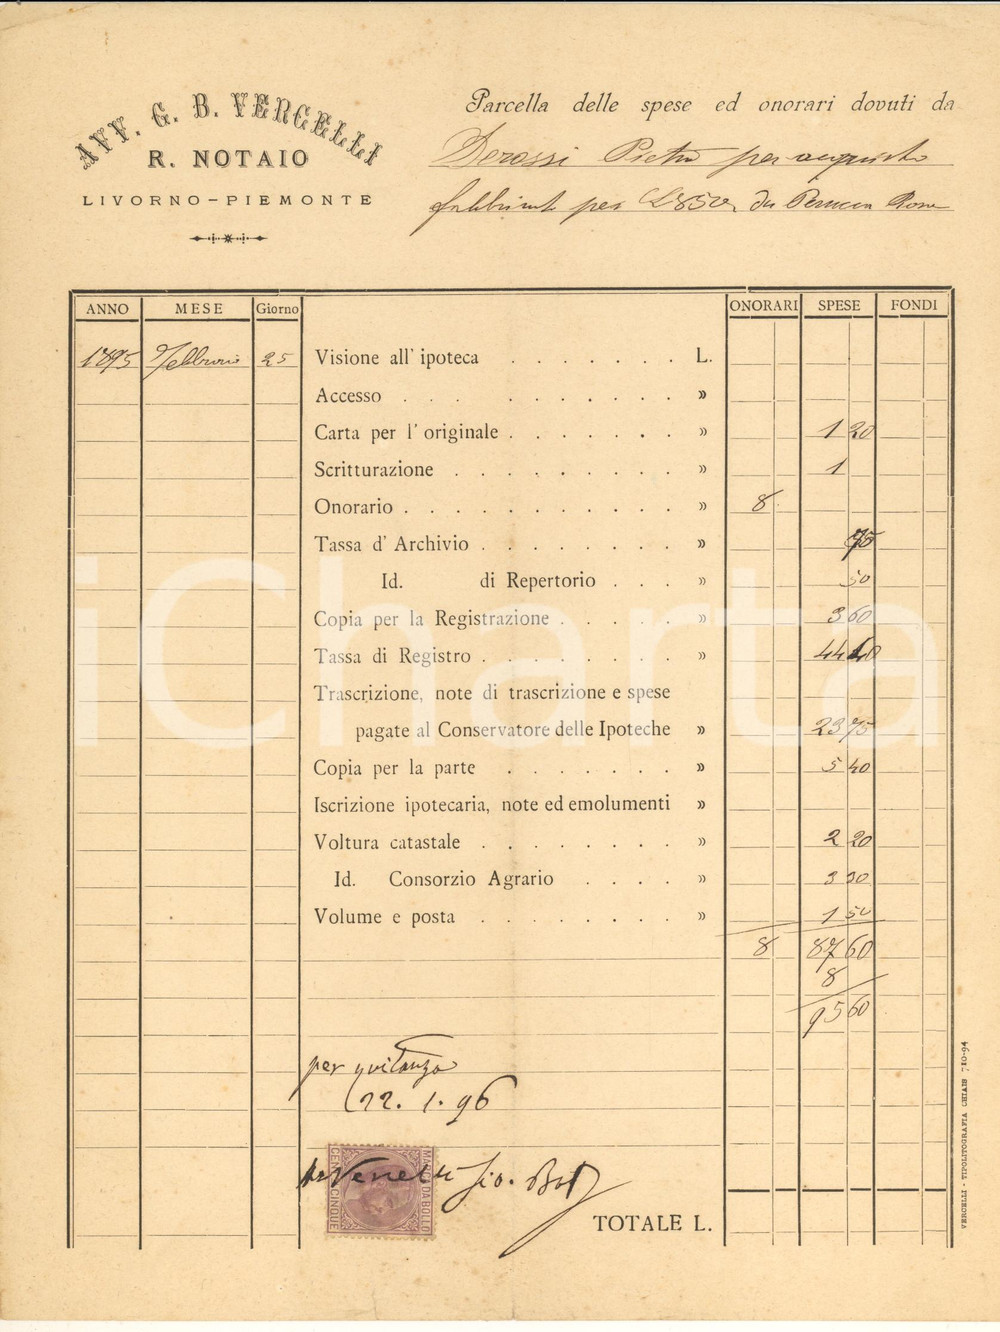 AVV. G. B. VERCELLI
R. NOTAIO
LIVORNO-PIEMONTE
Parcella delle spese ed onorari dovuti da
Derossi Pietro per acquisto
fabbricato per L 850 da Perucca Rosa
ANNO MESE Giorno ONORARI SPESE FONDI
1895 Febbraio 25 Visione all' ipoteca . . . . . . . L.
Accesso . . . . . . . . . . »
Carta per l' originale . . . . . . . » 1 20
Scritturazione . . . . . . . . . » 1
Onorario . . . . . . . . . . . » 8
Tassa d' Archivio . . . . . . . . » 75
Id. di Repertorio . . . » 50
Copia per la Registrazione . . . . . » 3 60
Tassa di Registro . . . . . . . . » 44 40
Trascrizione, note di trascrizione e spese
pagate al Conservatore delle Ipoteche » 23 75
Copia per la parte . . . . . . . » 5 40
Iscrizione ipotecaria, note ed emolumenti »
Voltura catastale . . . . . . . . » 2 20
Id. Consorzio Agrario . . . . » 3 30
Volume e posta . . . . . . . . » 1 50
8 87 60
8
95 60
per quitanza
22. 1. 96
MARCA DA BOLLO
CENT. CINQUE
TOTALE L.
VERCELLI - TIPOLITOGRAFIA CHIAIS 710-94
iCharta